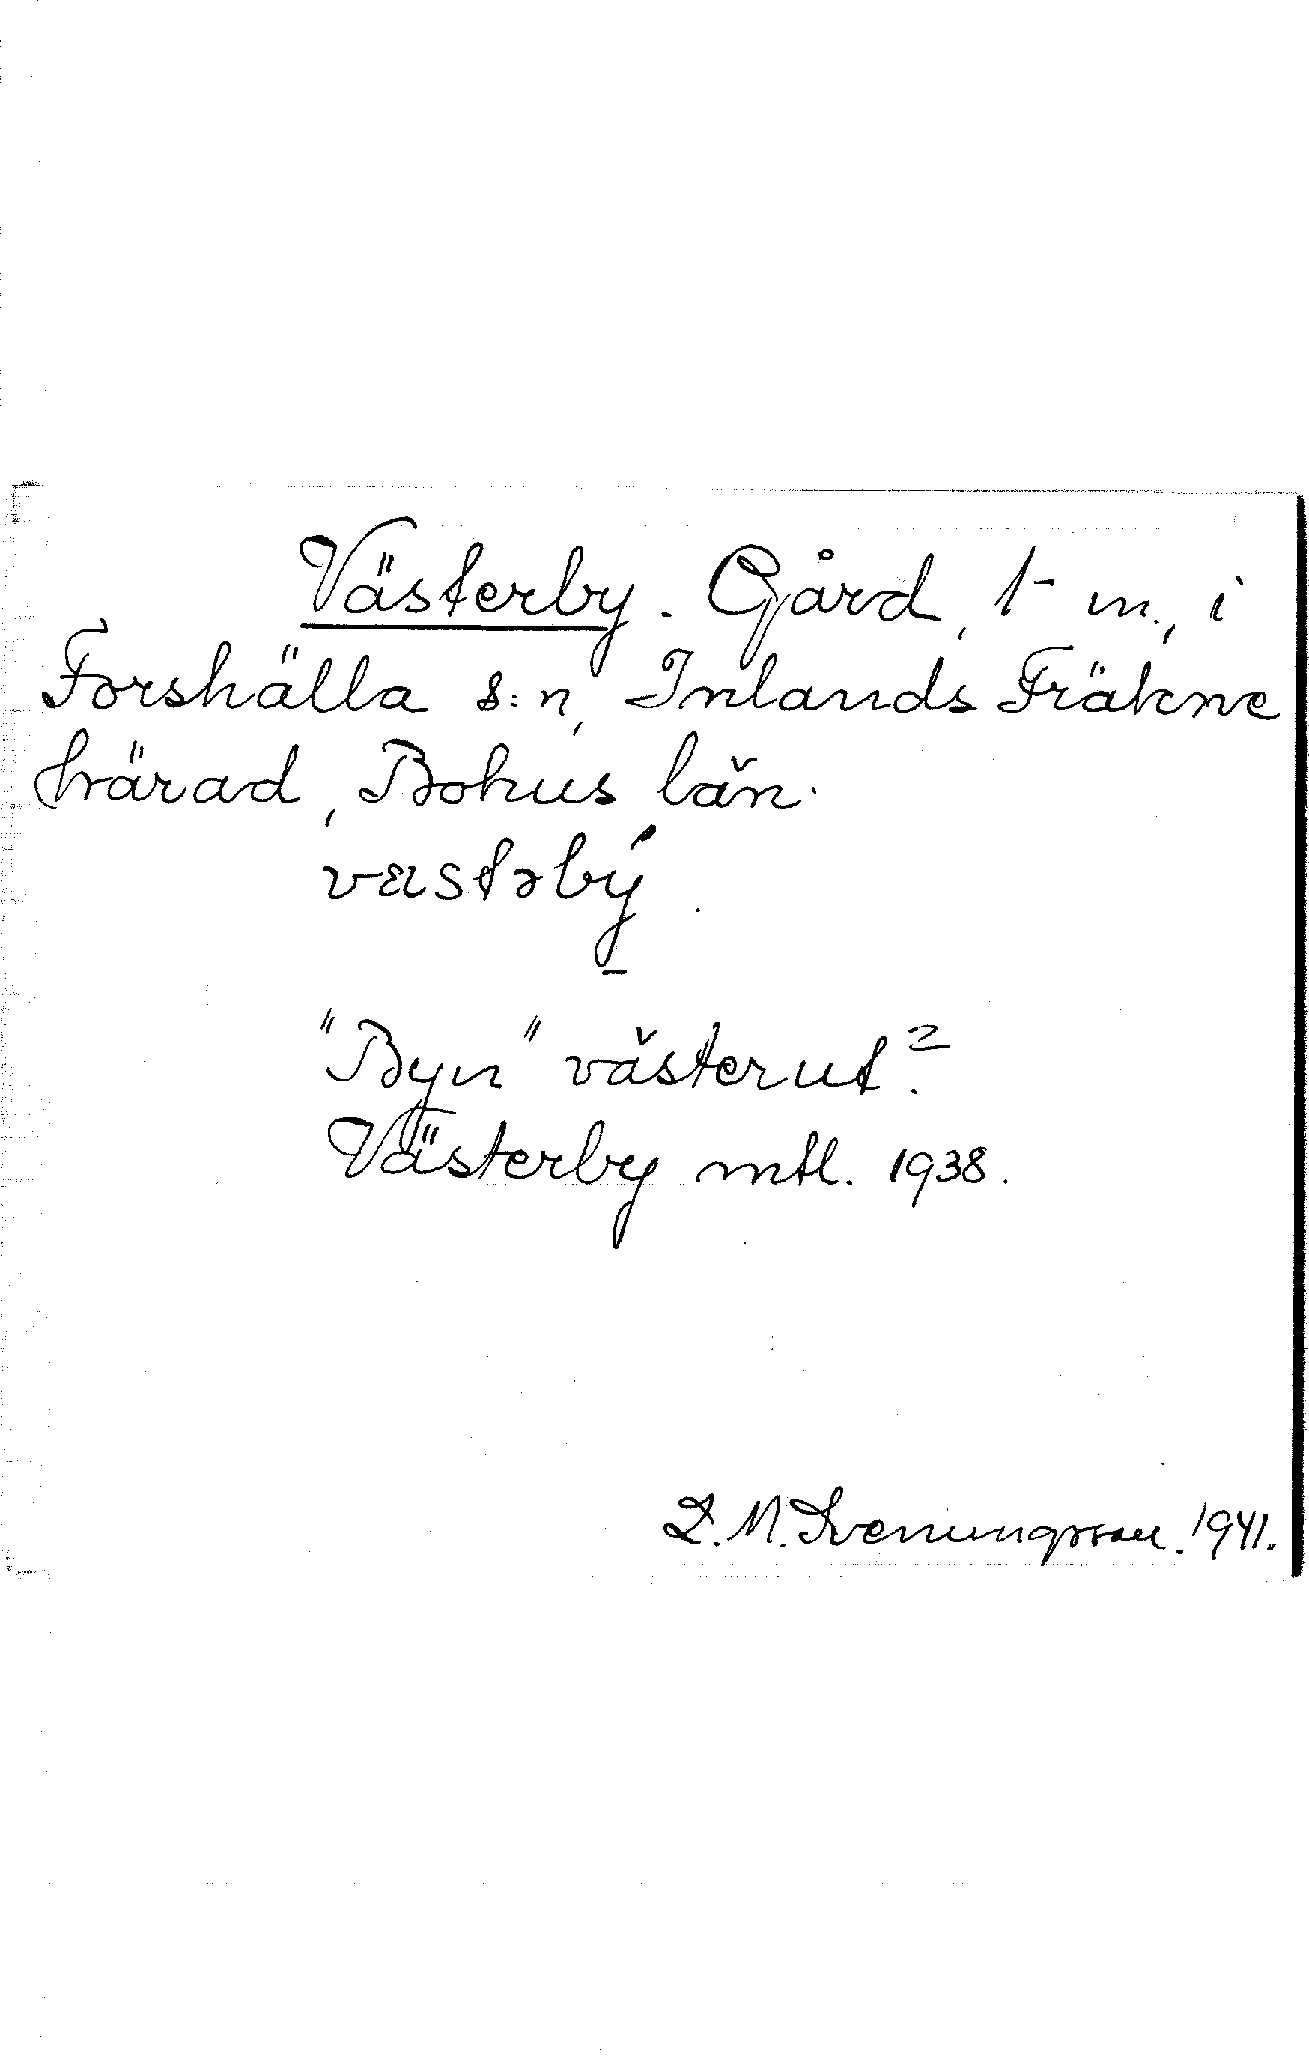 Västerby. Gård, 1 m., i
Forshälla s:n, Inlands Fräkne
härad, Bohus län.
væstəbý.
"Byn" västerut?
Västerby mtl. 1938.
D. M. Sveningsson. 1941.